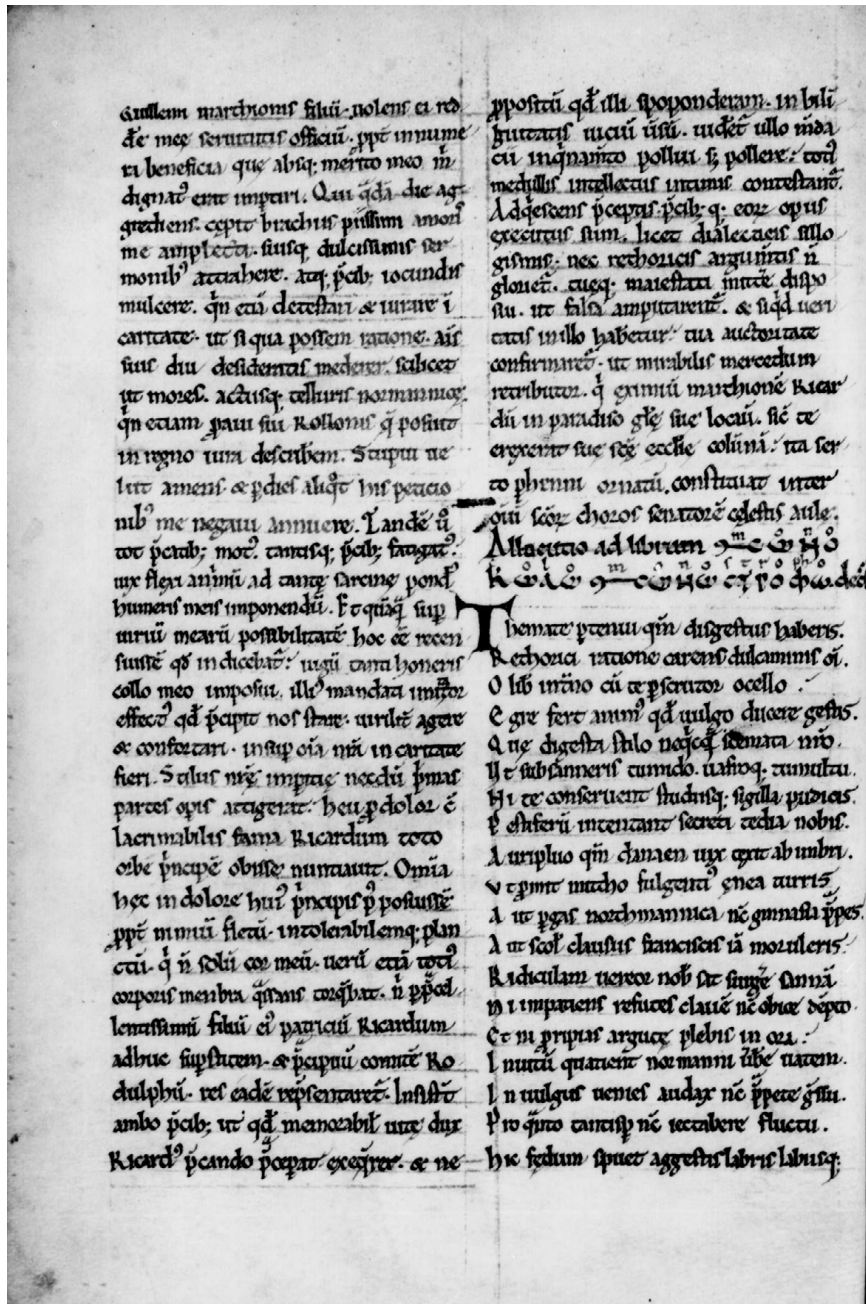 Guillelmi marchionis filiū. uolens ei red
dēe meę seruitutis officiū. ppt̄ innume
ra beneficia que absq; merito meo m̄
dignat᾽ erat imptiri. Qui q̄dā die ag
grediens. cepit brachiis piissimi amoris
me amplecti. suisq; dulcissimis ser
monib᾽ attrahere. atq; p̄cib; iocundis
mulcere. q̄n etiā detestari & iurare ī
caritate. ut si qua possem ratione. ai᷒s
suis diu desideratis mederer. scilicet
ut mores. actusq; telluris normannicę.
q̄n etiam ꝓaui sui Rollonis q̄ posuit
in regno iura describerem. Stupui ue
lut amens & ꝑ dies aliq̄t his peticio
nib᾽ me negaui annuere. Tandē ū
tot p̄cib; mot᾽. tantisq; p̄cib; fatigat᾽.
uix flexi animū ad tantę sarcinę pond᾽
humeris meis imponendū. Et quāq̄ sup
uiriū mearū possibilitatē hoc ēē recen
suissē qd̄ indicebat᾽: iugū tanti honeris
collo meo imposui. illi᾽ mandati
effect᾽ qd̄ p̄cipit nos stare. uirilit̄ agere
& confortari. insup oīa nr̄a in caritate
fieri. Stilus nr̄ę imperitię necdū p̄mas
partes opis attigerat: heu ꝓ dolor ē
lacrimabilis fama Ricardum toto
orbe p̄ncipē obisse nuntiauit. Omīa
hęc in dolore hui᾽ p̄ncipis p᾽ posuissē
ppt̄ nimiū fletū. intolerabilemq; plan
ctū. q̄ n̄ solū cor meū. uerū etiā toti᾽
corporis membra q̄ssans torq̄bat. n̄ p p̄cel
lentissimū filiū ei᾽ patriciū Ricardum
adhuc supstitem. & p̄cipuū comitē Ro
dulphū. res eadē rep̄sentaret᾽. Insistr̄t
ambo p̄cib; ut qd̄ memorabil᾽ uitę dux
Ricard᾽ p̄cando p̄ceperat exeq̄rer. & ne
ꝓpositū qd̄ illi spoponderam. in bili
guitatis uiciū ūsū. uideret᾽ ullo m̄da
cii inq̄namto pollui s; pollere: toti᾽
medullis intellectus intimis contestant᾽.
Adq̄escens p̄ceptis p̄cib; q; eorꝝ opus
executus sum. licet dialecticis sillo
gismis. nec rethoricis argum̄tis n̄
gloriet᾽. tueq; maiestati mitte᾽ dispo
sui. ut falsa amputarent᾽. & siq̄d ueri
tatis in illo habetur: tua auctoritate
confirmaret᾽. ut mirabilis mercedum
retributor. q̄ eximiū marchionē Ricar
dū in paradiso glę suę locau. sic te
erexerit suę scę ecclię colūnā. ita ser
to phenni ornatū. constituat inter
oui scōꝝ choros senatorē celestis aulę.
Allocutio ad librum
Themate ptenui q̄m disgestus haberis.
Rethorici ratione carens dulcaminis oī.
O lib intino cū te pscrutor ocello.
Egre fert anim᾽ qd̄ uulgo ducere gestis.
Quę digesta stilo neq̄cq̄ scemata nr̄o.
Vt subsanneris tumido. uafroq; tumultu.
Ni te conseruent studiisq; sigilla pudicis.
Pestiferū intentant secreti tedia nobis.
Auripluo q̄m danaen uix texit ab imbri.
Vt pimit mitho fulgenti᾽ ęnea turris
Aut pgas northmannica nc̄ gimnasia p̄pes.
Aut scol᾽ clausus franciscis iā moruleris.
Ridiculam uereor nob᾽ sat surge᾽ sannā
Ni impatiens refutes clauē nc̄ obice dēpto.
Et ni pripias argutę plebis in ora.
Inuitū quatient᾽ normanni urbe᾽ uatem.
In uulgus uenies audax nc̄ p̄pete g̃ssu.
Pro q̄nto tantisp nc̄ iectabere fluctu.
Hic fędum spuet aggestis labris labiisq;